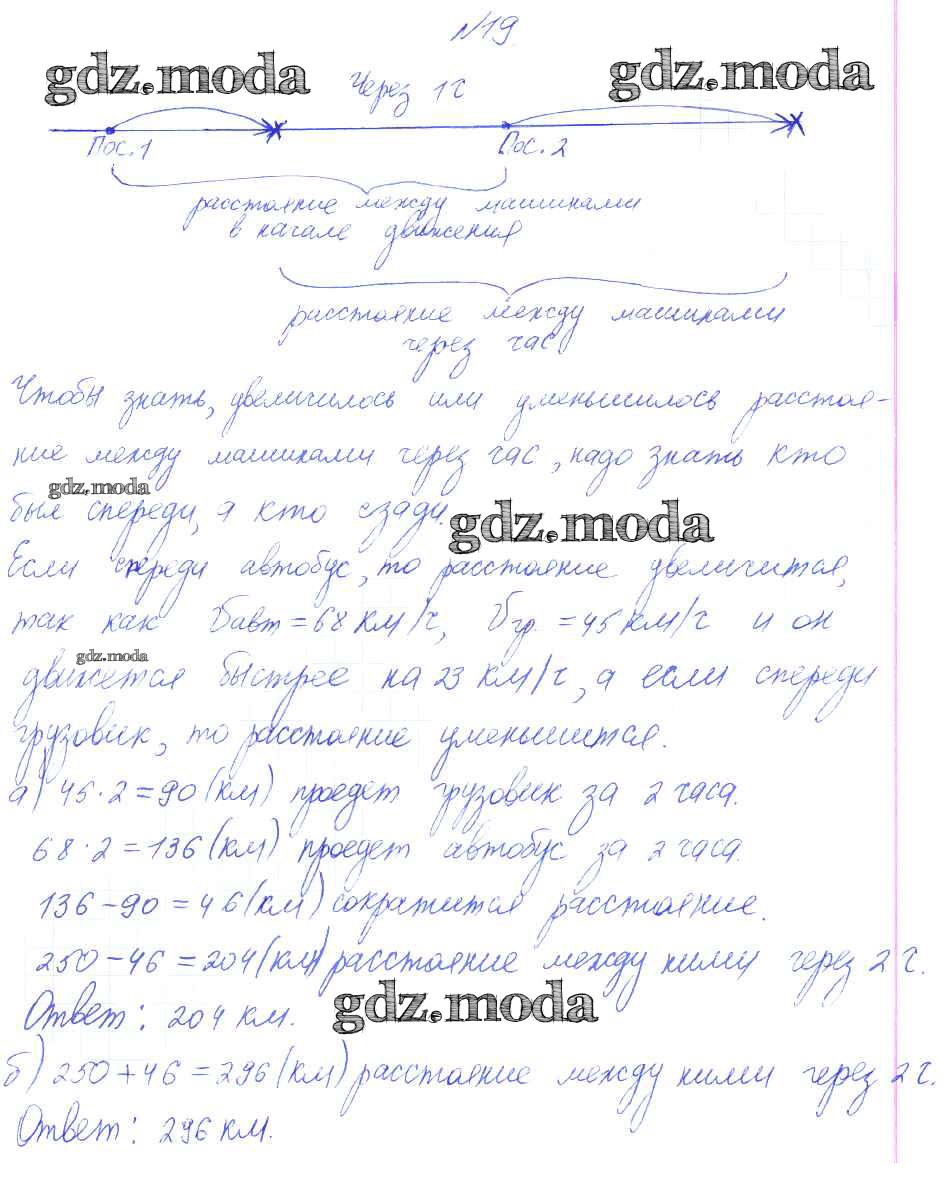 №19
gdz.moda
gdz.moda
Через 1ч
Пос. 1
Пос. 2
расстояние между машинами
в начале движения
расстояние между машинами
через час
Чтобы знать, увеличилось или уменьшилось расстоя-
ние между машинами через час, надо знать кто
gdz.moda
был спереди, а кто сзади.
gdz.moda
Если спереди автобус, то расстояние увеличится,
так как υавт = 68 км/ч, υгр. = 45 км/ч и он
gdz.moda
движется быстрее на 23 км/ч, а если спереди
грузовик, то расстояние уменьшится.
а) 45·2=90 (км) проедет грузовик за 2 часа.
68·2=136 (км) проедет автобус за 2 часа.
136-90=46 (км) сократится расстояние.
250-46=204 (км) расстояние между ними через 2 ч.
Ответ: 204 км.
gdz.moda
б) 250+46=296 (км) расстояние между ними через 2 ч.
Ответ: 296 км.